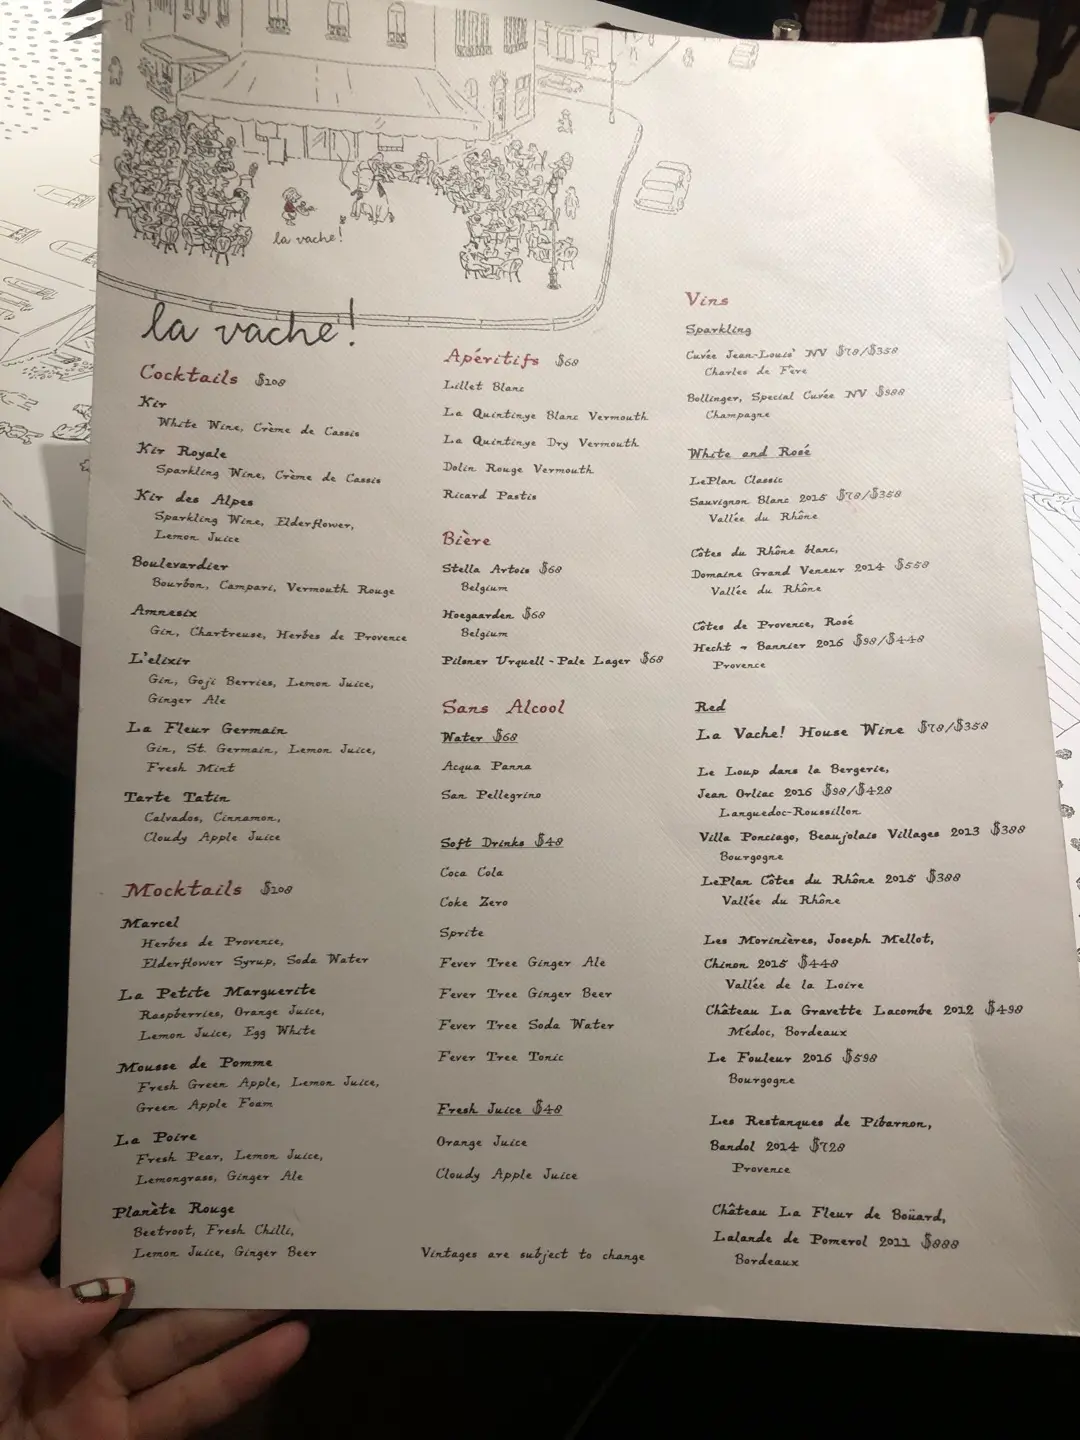 la vache!
la vache!
Cocktails $108
Kir
White Wine, Crème de Cassis
Kir Royale
Sparkling Wine, Crème de Cassis
Kir des Alpes
Sparkling Wine, Elderflower,
Lemon Juice
Boulevardier
Bourbon, Campari, Vermouth Rouge
Amnesix
Gin, Chartreuse, Herbes de Provence
L'elixir
Gin, Goji Berries, Lemon Juice,
Ginger Ale
La Fleur Germain
Gin, St. Germain, Lemon Juice,
Fresh Mint
Tarte Tatin
Calvados, Cinnamon,
Cloudy Apple Juice
Mocktails $108
Marcel
Herbes de Provence,
Elderflower Syrup, Soda Water
La Petite Marguerite
Raspberries, Orange Juice,
Lemon Juice, Egg White
Mousse de Pomme
Fresh Green Apple, Lemon Juice,
Green Apple Foam
La Poire
Fresh Pear, Lemon Juice,
Lemongrass, Ginger Ale
Planète Rouge
Beetroot, Fresh Chilli,
Lemon Juice, Ginger Beer
Apéritifs $68
Lillet Blanc
La Quintinye Blanc Vermouth
La Quintinye Dry Vermouth
Dolin Rouge Vermouth
Ricard Pastis
Bière
Stella Artois $68
Belgium
Hoegaarden $68
Belgium
Pilsner Urquell - Pale Lager $68
Sans Alcool
Water $68
Acqua Panna
San Pellegrino
Soft Drinks $48
Coca Cola
Coke Zero
Sprite
Fever Tree Ginger Ale
Fever Tree Ginger Beer
Fever Tree Soda Water
Fever Tree Tonic
Fresh Juice $48
Orange Juice
Cloudy Apple Juice
Vintages are subject to change
Vins
Sparkling
Cuvée Jean-Louis' NV $78/$358
Charles de Fère
Bollinger, Special Cuvée NV $988
Champagne
White and Rosé
LePlan Classic
Sauvignon Blanc 2015 $78/$358
Vallée du Rhône
Côtes du Rhône blanc,
Domaine Grand Veneur 2014 $558
Vallée du Rhône
Côtes de Provence, Rosé
Hecht & Bannier 2016 $98/$448
Provence
Red
La Vache! House Wine $78/$358
Le Loup dans la Bergerie,
Jean Orliac 2016 $98/$428
Languedoc-Roussillon
Villa Ponciago, Beaujolais Villages 2013 $388
Bourgogne
LePlan Côtes du Rhône 2015 $388
Vallée du Rhône
Les Morinières, Joseph Mellot,
Chinon 2015 $448
Vallée de la Loire
Château La Gravette Lacombe 2012 $498
Médoc, Bordeaux
Le Fouleur 2016 $598
Bourgogne
Les Restanques de Pibarnon,
Bandol 2014 $728
Provence
Château La Fleur de Boüard,
Lalande de Pomerol 2011 $888
Bordeaux